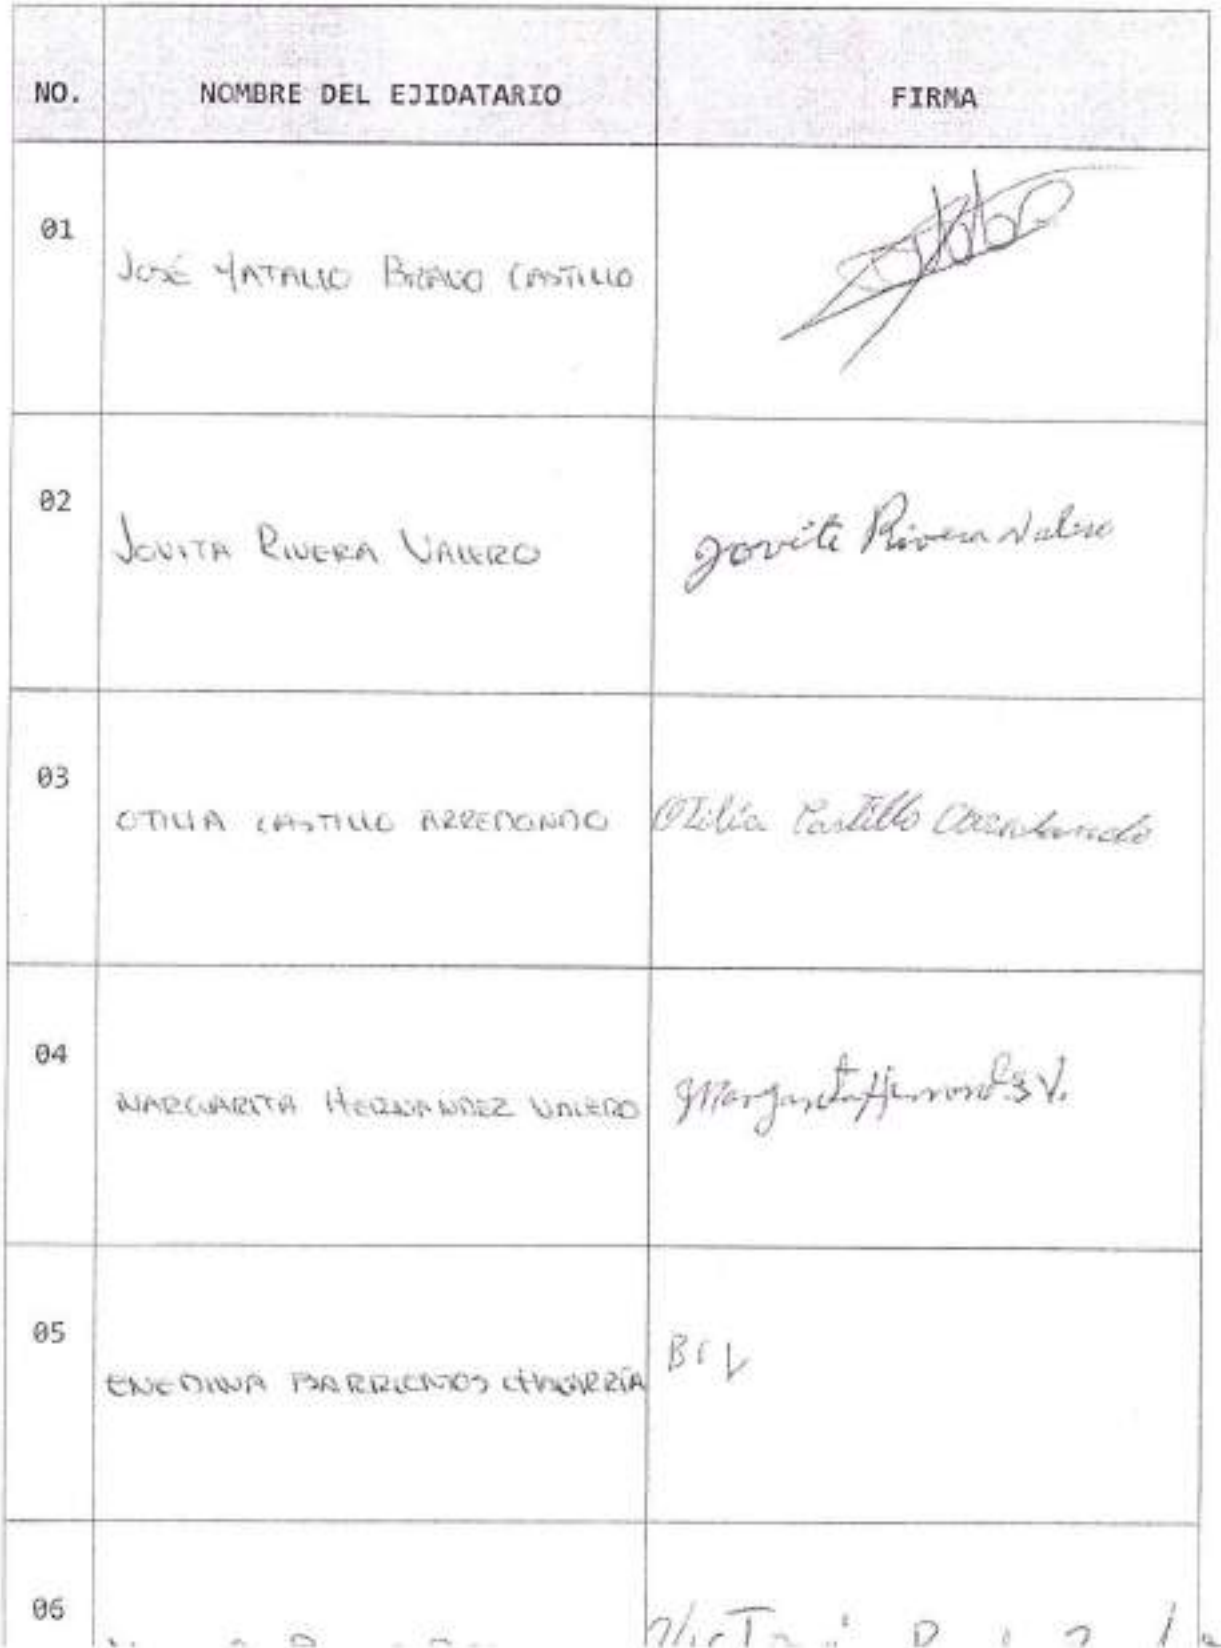 NO. NOMBRE DEL EJIDATARIO FIRMA
01
JOSÉ NATALIO BRAVO CASTILLO
02
JOVITA RIVERA VALERO Jovita Rivera Valero
03
OTILIA CASTILLO ARREDONDO Otilia Castillo
04
MARGARITA HERNANDEZ VALERO Margarita V.
05
ENEDINA BARRIENTOS CHAVARRÍA
06